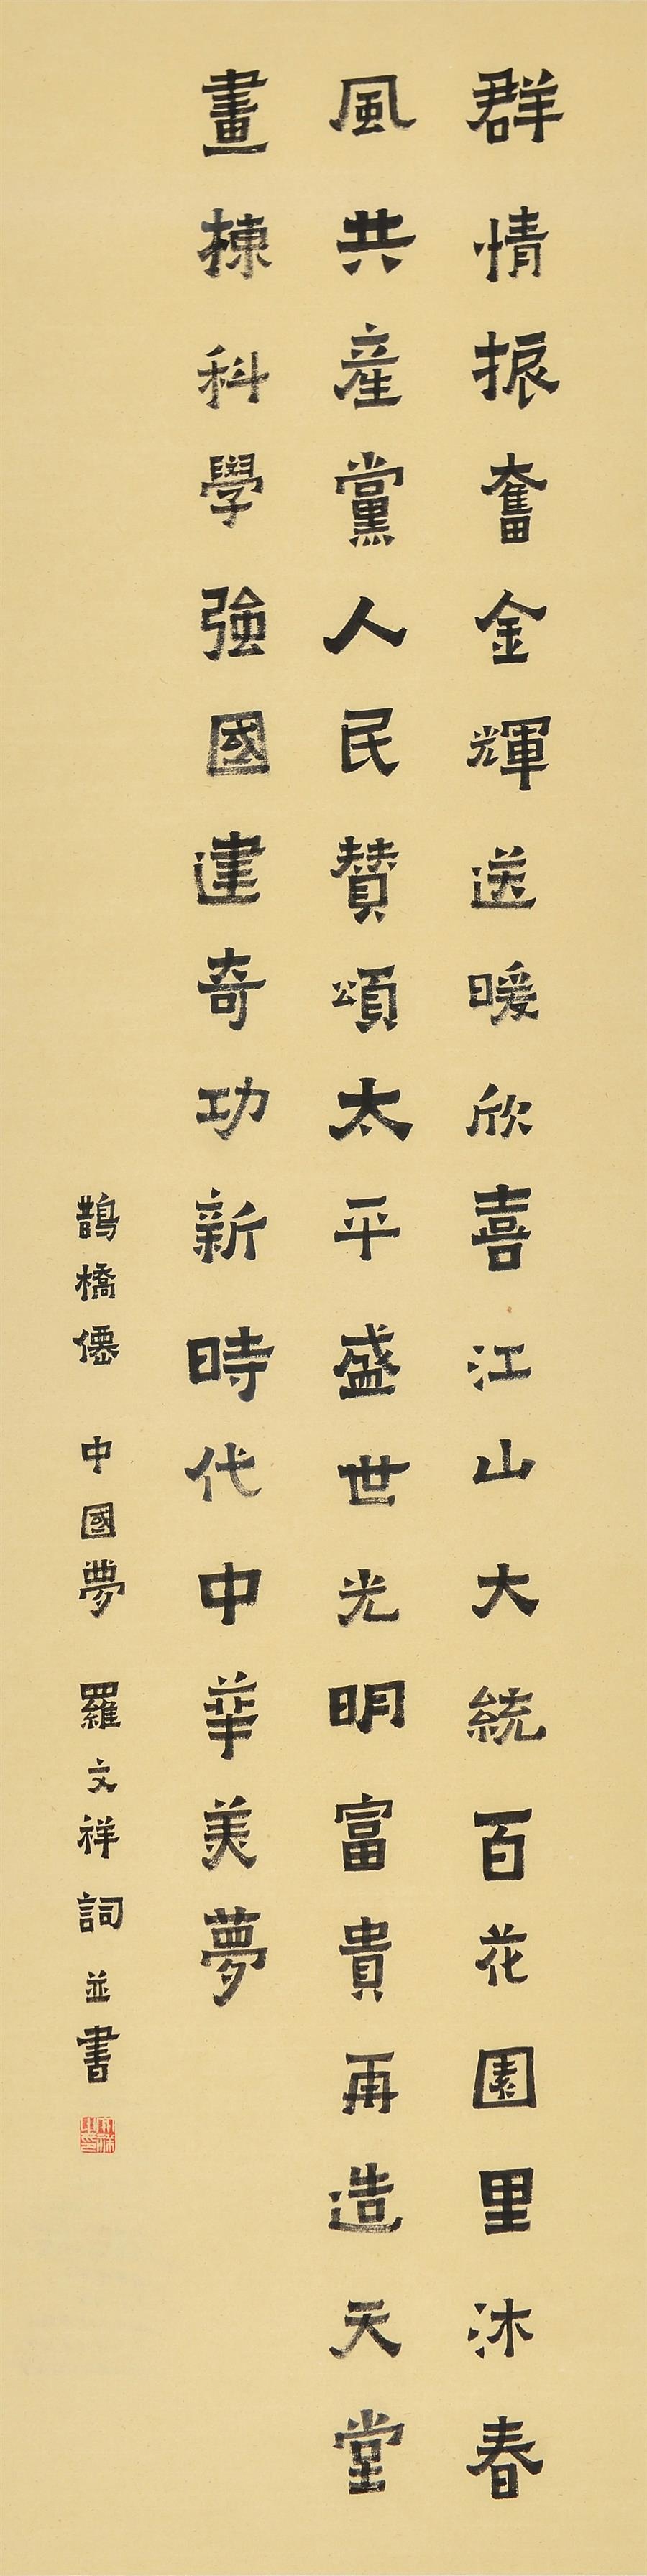 群情振奮金輝送暖欣喜江山大統百花園里沐春
風共産黨人民贊頌太平盛世光明富貴再造天堂
畫棟科學強國建奇功新時代中華美夢
鵲橋僊 中國夢 羅文祥詞並書